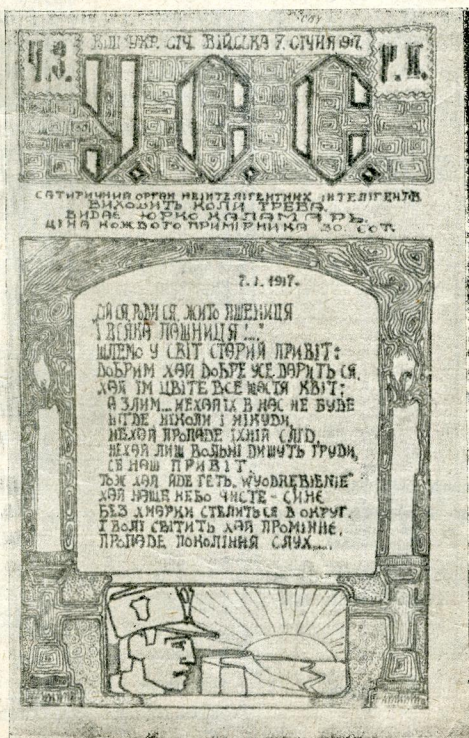 Ч.З.
УКР. СІЧ. ВІЙСЬКА 7. СІЧНЯ 1917.
У.С.С.
САТИРИЧНИЙ ОРГАН НЕІТЕЛІГЕНТНИХ ІНТЕЛІГЕНТІВ
ВИХОДИТЬ КОЛИ ТРЕБА
ВИДАЄ ЮРКО КАЛАМАРЬ.
ЦІНА КОЖДОГО ПРИМІРНИКА 30. СОТ.
7. I. 1917.
РОДИ СЯ, ЖИТО ПШЕНИЦЯ
І ВСЯКА ПАШНИЦЯ!..."
ШЛЕМО У СВІТ СТАРИЙ ПРИВІТ:
ДОБРИМ ХАЙ ДОБРЕ УСЕ ДАРИТЬ СЯ,
ХАЙ ЇМ ЦВІТЕ ВСЕ ЩАСТЯ КВІТ;
А ЗЛИМ... НЕХАЙ ЇХ В НАС НЕ БУДЕ
НІГДЕ, НІКОЛИ І НІКУДИ,
НЕХАЙ ПРОПАДЕ ЇХНІЙ СЛІД,
НЕХАЙ ЛИШ ВОЛЬНІ ДИШУТЬ ГРУДИ,
СЕ НАШ ПРИВІТ.
ТОЖ ХАЙ ЙДЕ ГЕТЬ „WYODRĘBIENIE"
ХАЙ НАШЕ НЕБО ЧИСТЕ - СИНЄ
БЕЗ ХМАРКИ СТЕЛИТЬСЯ В ОКРУГ.
І ВОЛІ СВІТИТЬ ХАЙ ПРОМІННЄ,
ПРОПАДЕ ПОКОЛІННЯ СЛУХ....